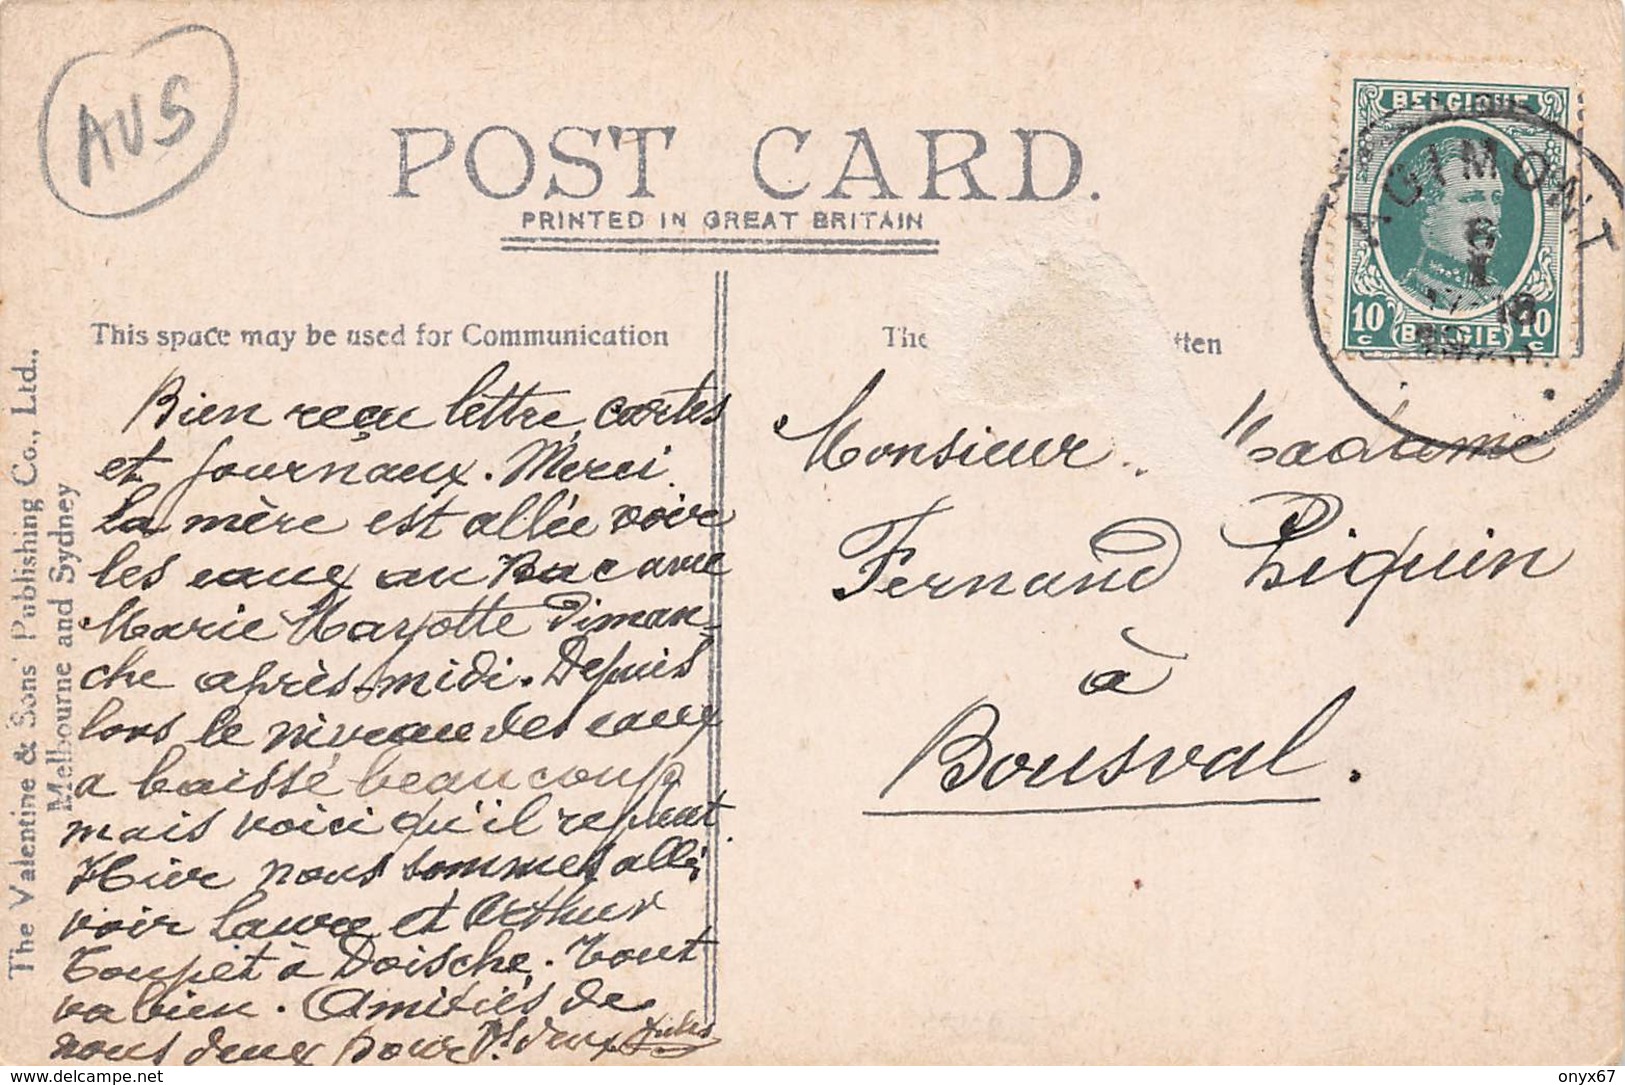 AUS
POST CARD.
PRINTED IN GREAT BRITAIN
BELGIQUE
AGIMONT
6
I
10 c
BELGIE
10 c
This space may be used for Communication
The
tten
The Valentine & Sons' Publishing Co., Ltd.,
Melbourne and Sydney
Bien reçu lettre, cartes
et journaux. Merci.
La mère est allée voir
les eaux au Bac avec
Marie Mayotte Diman-
che après-midi. Depuis
lors le niveau des eaux
a baissé beaucoup
mais voici qu'il repleut.
Hier nous sommes allés
voir Laure et Arthur
Toupet à Doische. Tout
va bien. Amitiés de
nous deux pour Vs deux Jules
Monsieur Madame
Fernand Piquin
à
Bousval.
delcampe.net
onyx67